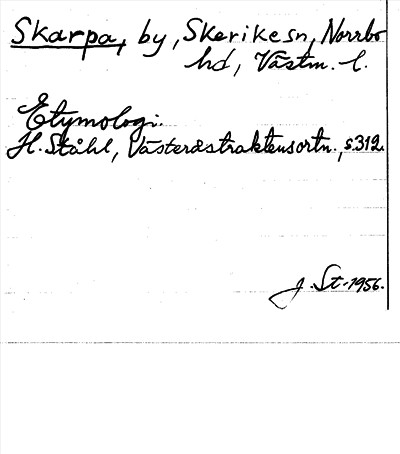 Skarpa, by, Skerikesn, Norrbo
hd, Västm. l.
Etymologi.
H. Ståhl, Västeråstraktens ortn., s. 312.
J. St. 1956.